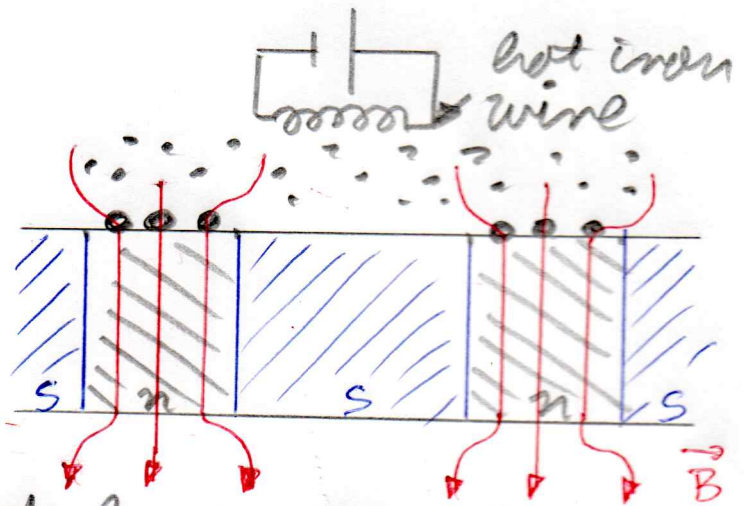 hot iron
wire
S n S n S
B